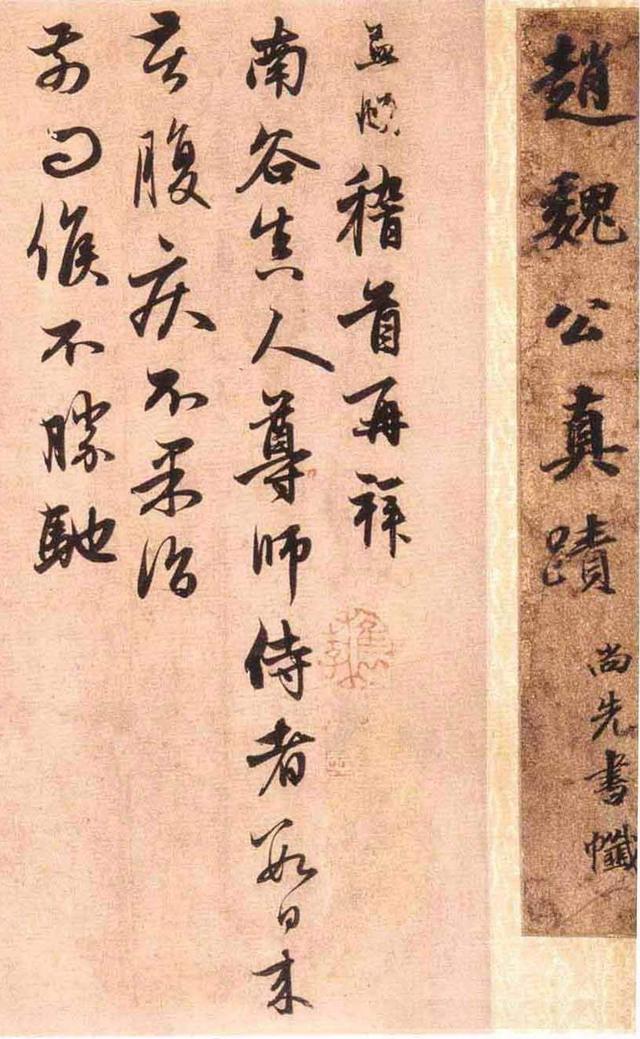 趙魏公真蹟
尚先書籤
孟頫稽首再拜
南谷真人尊師侍者數日來
苦腹疾不果詣
前問候不勝馳